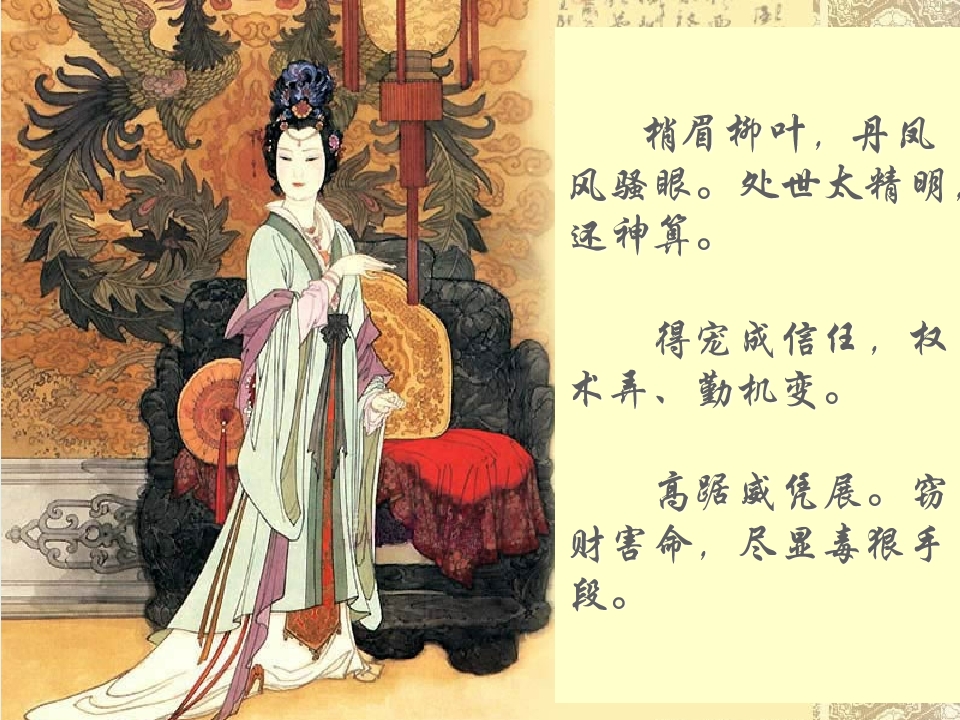 梢眉柳叶，丹凤
风骚眼。处世太精明，
还神算。
得宠成信任，权
术弄、勤机变。
高踞威凭展。窃
财害命，尽显毒狠手
段。